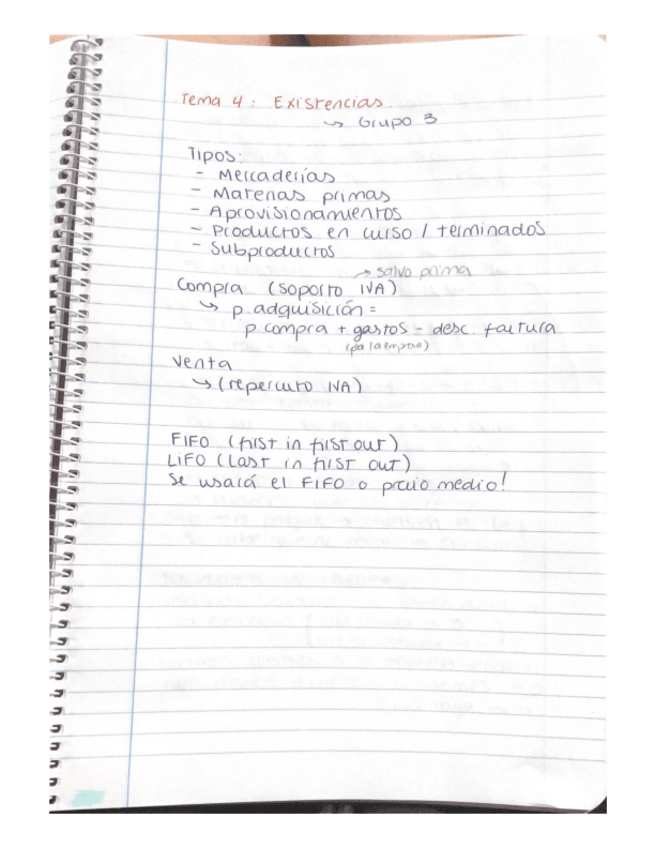 Tema 4: Existencias.
↳ Grupo 3
Tipos:
- Mercaderías
- Materias primas
- Aprovisionamientos
- Productos en curso / terminados
- Subproductos
→ salvo prima
Compra (soporto IVA)
↳ p. adquisición =
p. compra + gastos - desc. factura
(pa la empresa)
Venta
↳ (repercuto IVA)
FIFO (first in first out)
LIFO (Last in first out)
Se usará el FIFO o precio medio!